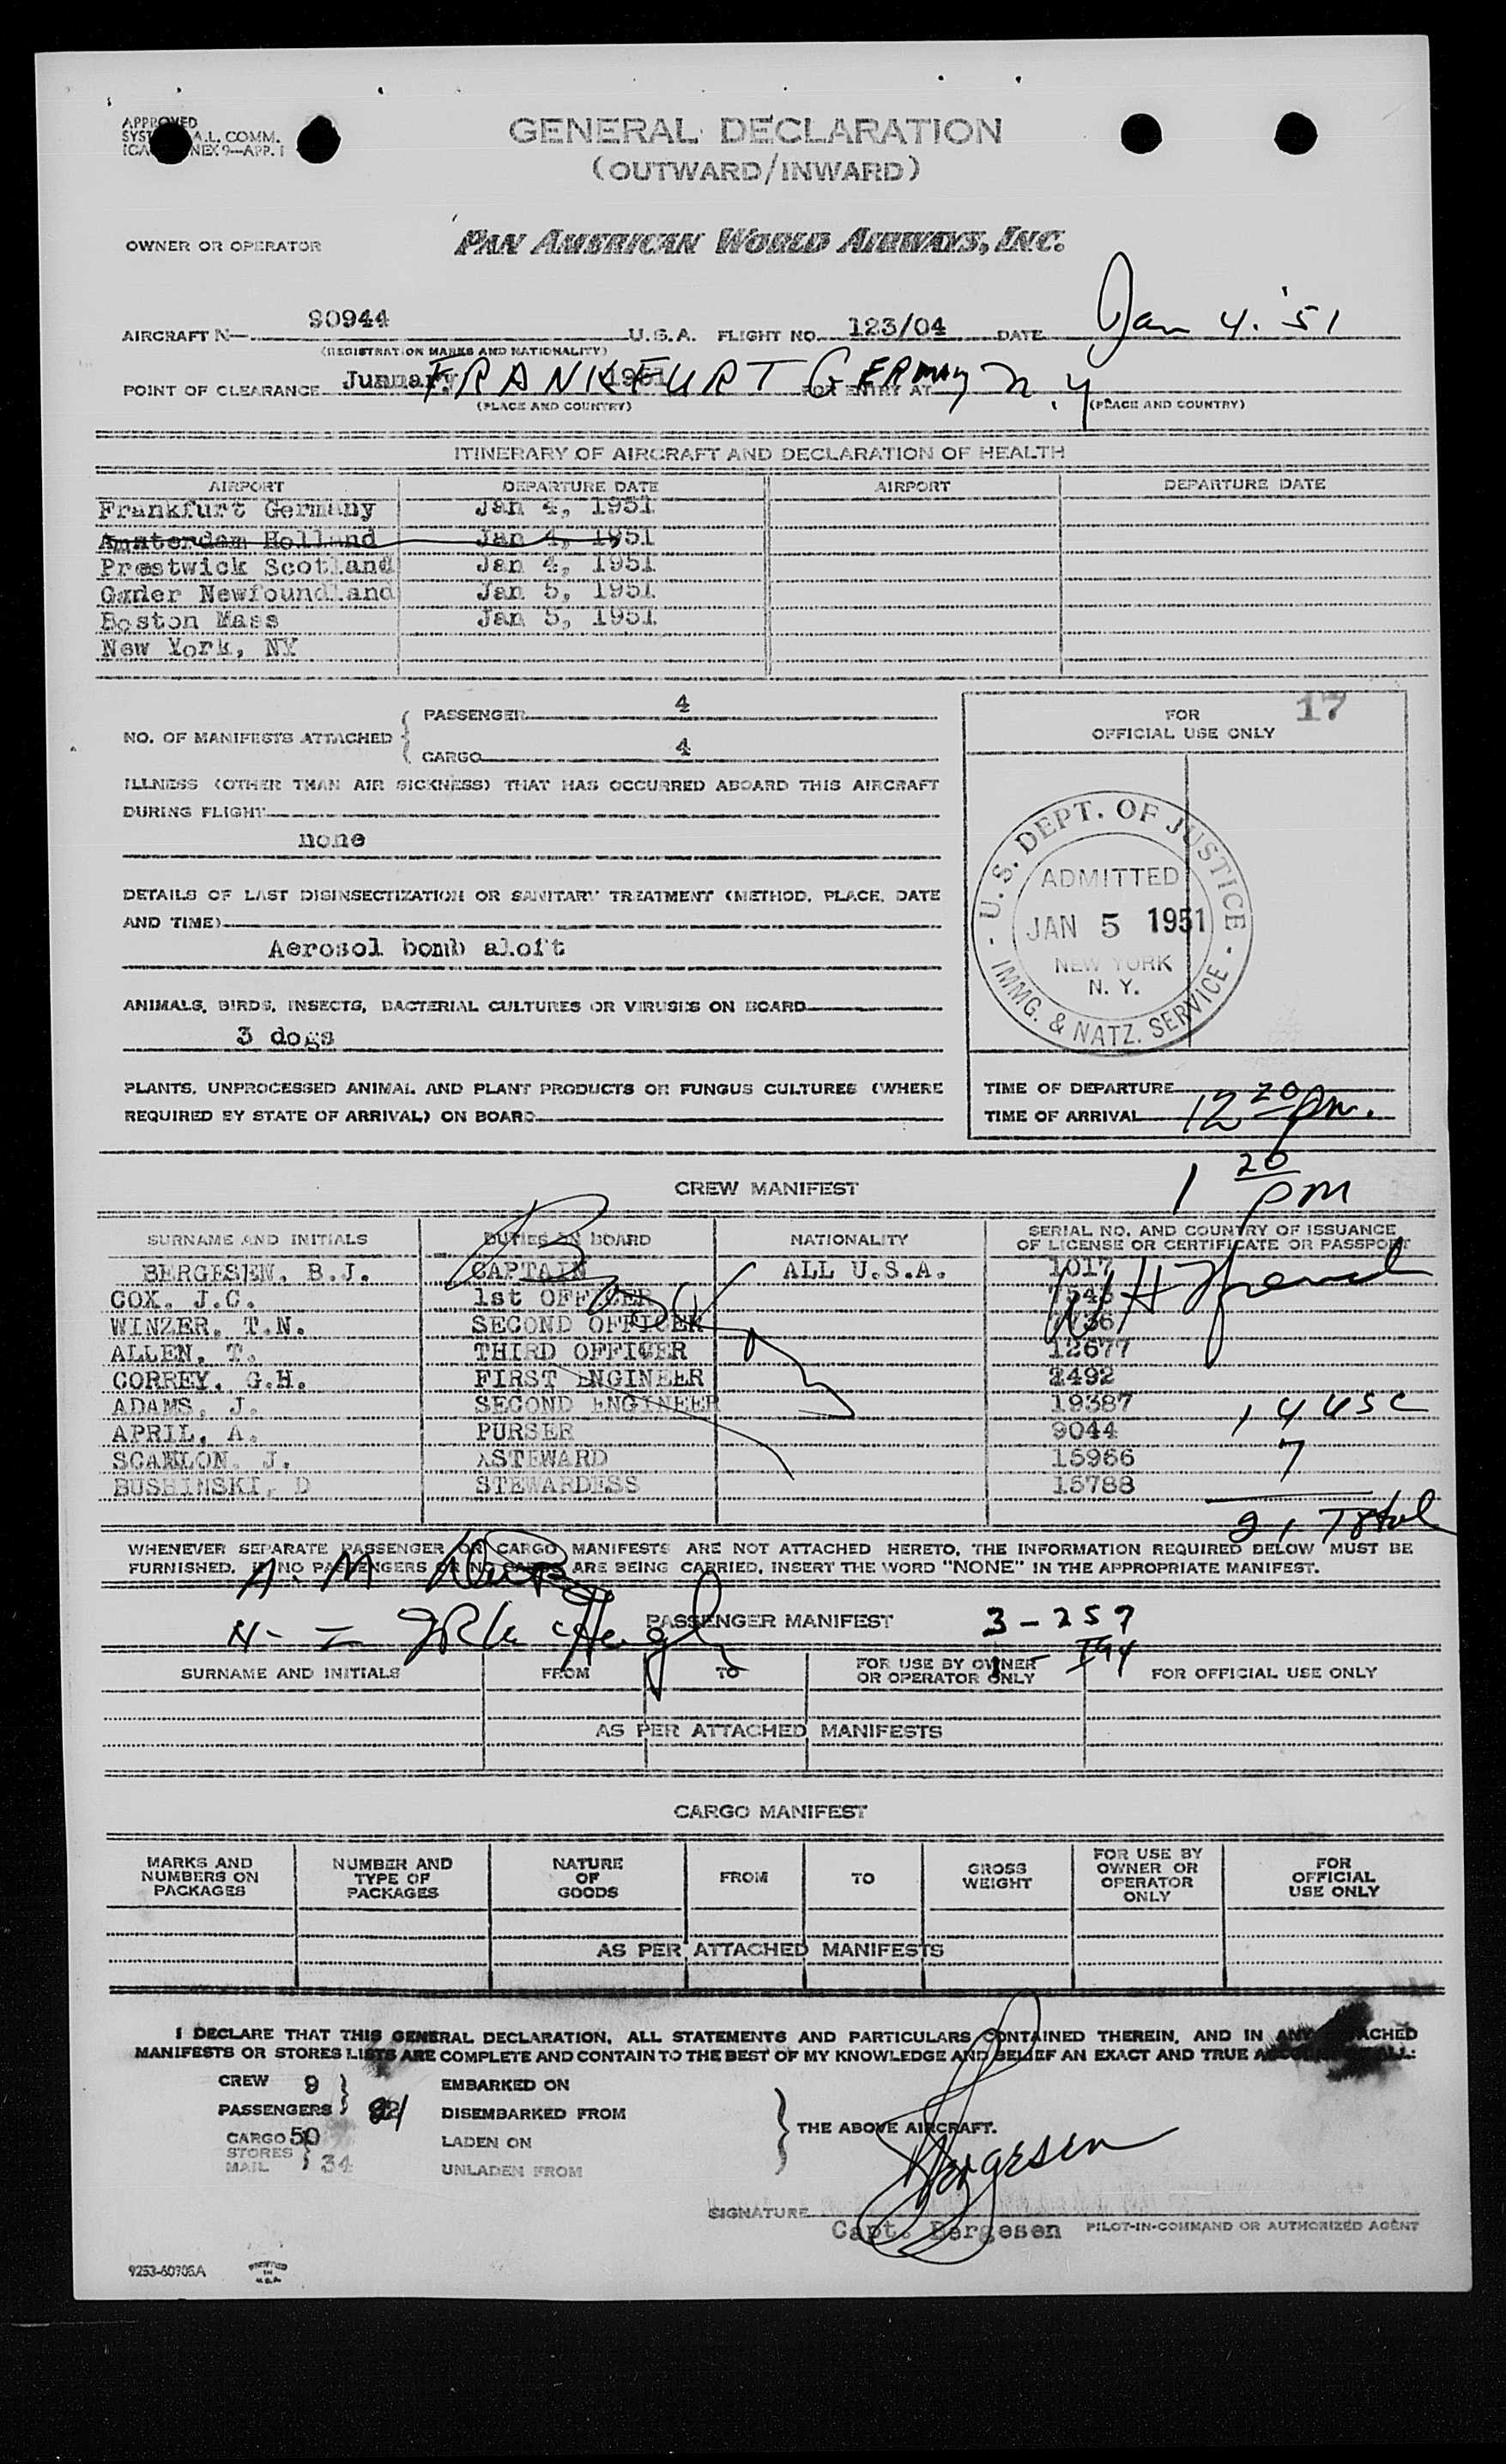 APPROVED
A.L. COMM.
NEX 9—APP. 1
GENERAL DECLARATION
(OUTWARD/INWARD)
OWNER OR OPERATOR PAN AMERICAN WORLD AIRWAYS, INC.
AIRCRAFT N— 90944 U.S.A. FLIGHT NO. 123/04 DATE Jan 4. '51
(REGISTRATION MARKS AND NATIONALITY)
POINT OF CLEARANCE FRANKFURT GERMANY FOR ENTRY AT N.Y
(PLACE AND COUNTRY) (PLACE AND COUNTRY)
ITINERARY OF AIRCRAFT AND DECLARATION OF HEALTH
AIRPORT DEPARTURE DATE AIRPORT DEPARTURE DATE
Frankfurt Germany Jan 4, 1951
Amsterdam Holland Jan 4, 1951
Prestwick Scotland Jan 4, 1951
Gander Newfoundland Jan 5, 1951
Boston Mass Jan 5, 1951
New York, NY
NO. OF MANIFESTS ATTACHED { PASSENGER 4
CARGO 4
ILLNESS (OTHER THAN AIR SICKNESS) THAT HAS OCCURRED ABOARD THIS AIRCRAFT
DURING FLIGHT
none
DETAILS OF LAST DISINSECTIZATION OR SANITARY TREATMENT (METHOD, PLACE, DATE
AND TIME)
Aerosol bomb aloft
ANIMALS, BIRDS, INSECTS, BACTERIAL CULTURES OR VIRUSES ON BOARD
3 dogs
PLANTS, UNPROCESSED ANIMAL AND PLANT PRODUCTS OR FUNGUS CULTURES (WHERE
REQUIRED BY STATE OF ARRIVAL) ON BOARD
FOR 17
OFFICIAL USE ONLY
U.S. DEPT. OF JUSTICE
ADMITTED
JAN 5 1951
NEW YORK
N. Y.
IMMG. & NATZ. SERVICE
TIME OF DEPARTURE
TIME OF ARRIVAL 12 20 pm.
1 20 PM
CREW MANIFEST
SURNAME AND INITIALS DUTIES ON BOARD NATIONALITY SERIAL NO. AND COUNTRY OF ISSUANCE
OF LICENSE OR CERTIFICATE OR PASSPORT
BERGESEN, B.J. CAPTAIN ALL U.S.A. 1017
COX, J.C. 1st OFFICER 7543
WINZER, T.N. SECOND OFFICER
ALLEN, T. THIRD OFFICER 12677
CORREY, G.H. FIRST ENGINEER 2492
ADAMS, J. SECOND ENGINEER 19387 14 USC
APRIL, A. PURSER 9044
SCANLON, J. STEWARD 15966 7
BUSHINSKI, D STEWARDESS 15788
21 Total
WHENEVER SEPARATE PASSENGER OR CARGO MANIFESTS ARE NOT ATTACHED HERETO, THE INFORMATION REQUIRED BELOW MUST BE
FURNISHED. IF NO PASSENGERS OR NO CARGO ARE BEING CARRIED, INSERT THE WORD "NONE" IN THE APPROPRIATE MANIFEST.
PASSENGER MANIFEST 3 - 257
SURNAME AND INITIALS FROM TO FOR USE BY OWNER
OR OPERATOR ONLY FOR OFFICIAL USE ONLY
AS PER ATTACHED MANIFESTS
CARGO MANIFEST
MARKS AND NUMBERS ON PACKAGES NUMBER AND TYPE OF PACKAGES NATURE OF GOODS FROM TO GROSS WEIGHT FOR USE BY OWNER OR OPERATOR ONLY FOR OFFICIAL USE ONLY
AS PER ATTACHED MANIFESTS
I DECLARE THAT THIS GENERAL DECLARATION, ALL STATEMENTS AND PARTICULARS CONTAINED THEREIN, AND IN ANY
MANIFESTS OR STORES LISTS ARE COMPLETE AND CONTAIN TO THE BEST OF MY KNOWLEDGE AND BELIEF AN EXACT AND TRUE ALL:
CREW 9 EMBARKED ON
PASSENGERS 21 DISEMBARKED FROM THE ABOVE AIRCRAFT.
CARGO 50 LADEN ON
STORES
MAIL 34 UNLADEN FROM
Bergesen
SIGNATURE
Capt. Bergesen PILOT-IN-COMMAND OR AUTHORIZED AGENT
9253-60705A PRINTED IN U.S.A.